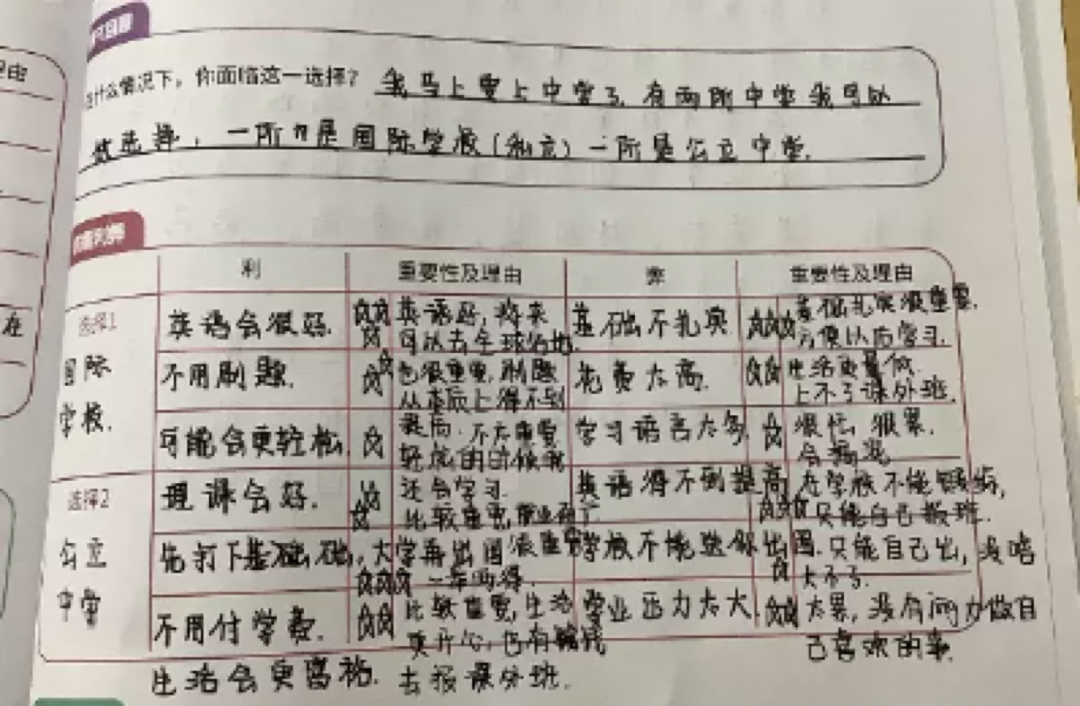 理由
什么情况下，你面临这一选择？我马上要上中学了，有两所中学我可以
做选择，一所是国际学校（私立）一所是公立中学.
利 重要性及理由 弊 重要性及理由
选择1
国际
学校.
英语会很好. ☆☆☆ 英语好，将来
可以去全球各地.
基础不扎实 ☆☆☆ 基础扎实很重要.
方便以后学习.
不用刷题. ☆☆ 也很重要，刷题
从本质上得不到
花费太高. ☆☆ 生活质量低.
上不了课外班.
可能会更轻松. ☆ 不太重要
轻松的时候我
还会学习.
学习语言太多 ☆ 很忙，很累.
选择2
公立
中学
理课会好. ☆☆
比较重要,
英语得不到提高 ☆☆☆ 在学校不能锻炼,
只能自己报班.
先打下基础础, 大学再出国很重要
☆☆☆ 一举两得.
学校不能送你出国. ☆ 只能自己出，没啥
大不了.
不用付学费. ☆☆ 比较重要，生活
更开心，也有钱
去报课外班.
学业压力太大 ☆☆ 太累，没有 做自
己喜欢的事.
生活会更富裕.
在